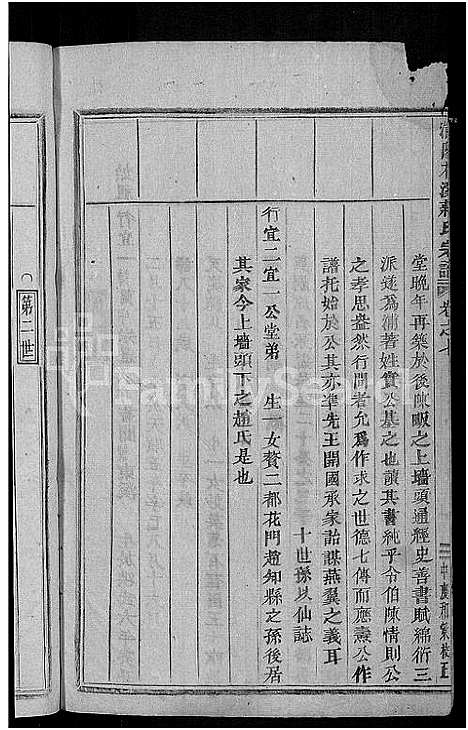 宗譜 卷之七
堂晚年再築於後陳畈之上墻頭通經史善書賦綿衍三
派遂爲浦著姓實公基之也讀其書純乎令伯陳情則公
之孝思盎然行間者允爲作求之世德七傳而應熹公作
譜托始於公其亦準先王開國承家詒謀燕翼之義耳
十世孫以仙誌
行宜二宜一公堂弟 生一女贅二都花門趙知縣之孫後居
其家今上墻頭下之趙氏是也
第二世